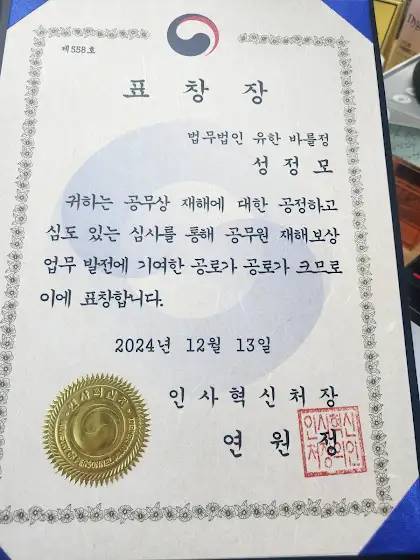 제 558 호
표 창 장
법무법인 유한 바를정
성 정 모
귀하는 공무상 재해에 대한 공정하고
심도 있는 심사를 통해 공무원 재해보상
업무 발전에 기여한 공로가 공로가 크므로
이에 표창합니다.
2024년 12월 13일
인 사 혁 신 처 장
연 원 정
인사혁신
처장의인
인사혁신처